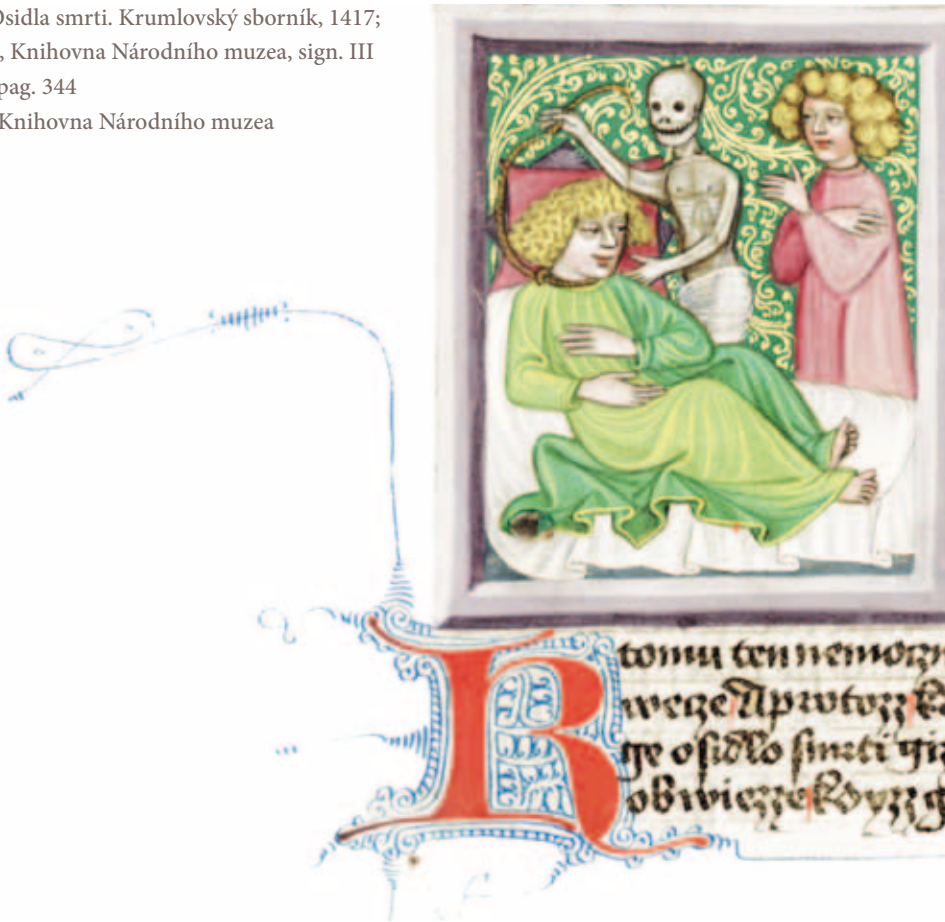 Osidla smrti. Krumlovský sborník, 1417;
, Knihovna Národního muzea, sign. III
pag. 344
Knihovna Národního muzea
K tomu ten
wecze A protozz
ge osidlo smrti
obwiezze kdyzz